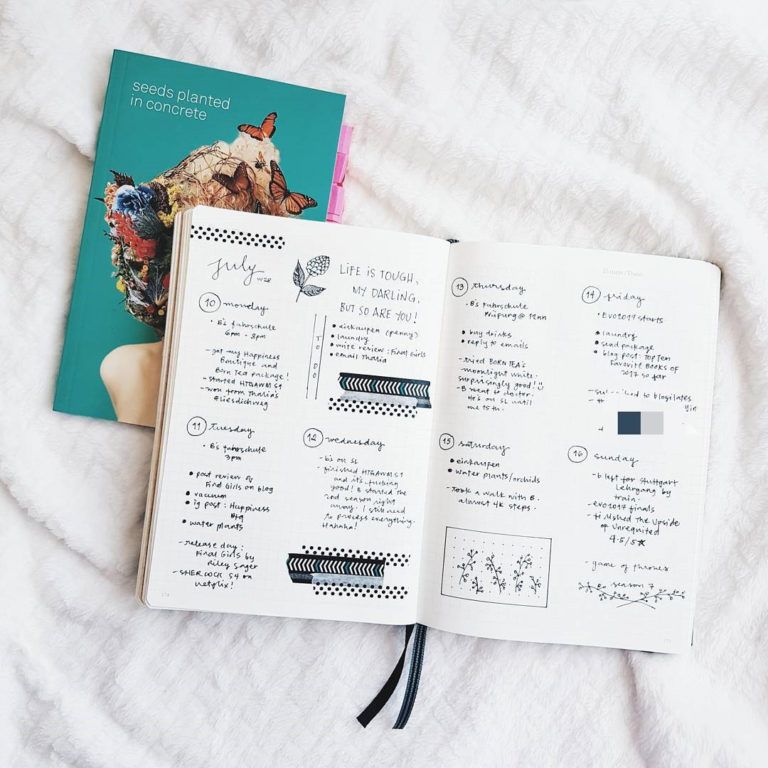 seeds planted
in concrete
july
W28
LIFE IS TOUGH,
MY DARLING,
BUT SO ARE YOU!
TO DO
• einkaufen (penny)
• laundry
• write review: Final Girls
• email Thalia
10 monday
• B's Fahrschule
6pm - 8pm
- got my Happiness
Boutique and
Born Tea package!
- started HTGAWM S1
- won from Thalia's
11 tuesday
• B's Fahrschule
3pm
• post review of
Final Girls on blog
• vacuum
• ig post: Happiness
Btq
• water plants
- release day:
Final Girls by
Riley Sager
- SHERLOCK S4 on
Netflix!
12 wednesday
- B's on SL
- finished HTGAWM S1
and it's fucking
good! & started the
2nd season right
away. I still need
to process everything.
Hahaha!
13 thursday
• B's Fahrschule
Prüfung @ 12nn
• buy drinks
• reply to emails
- tried BORN TEA's
moonlight white.
surprisingly good!
- B went to doctor.
He's on SL until
the 15th.
14 friday
• EVO2017 starts
• laundry
• send package
• blog post: Top Ten
Favorite Books of
2017 so far
to blogilates
15 saturday
• einkaufen
• water plants/orchids
- Took a walk with B.
almost 4k steps.
16 sunday
- B left for Stuttgart
Lehrgang by
train.
- EVO2017 finals
- finished The Upside
of Unrequited
4.5/5★
- game of thrones
season 7